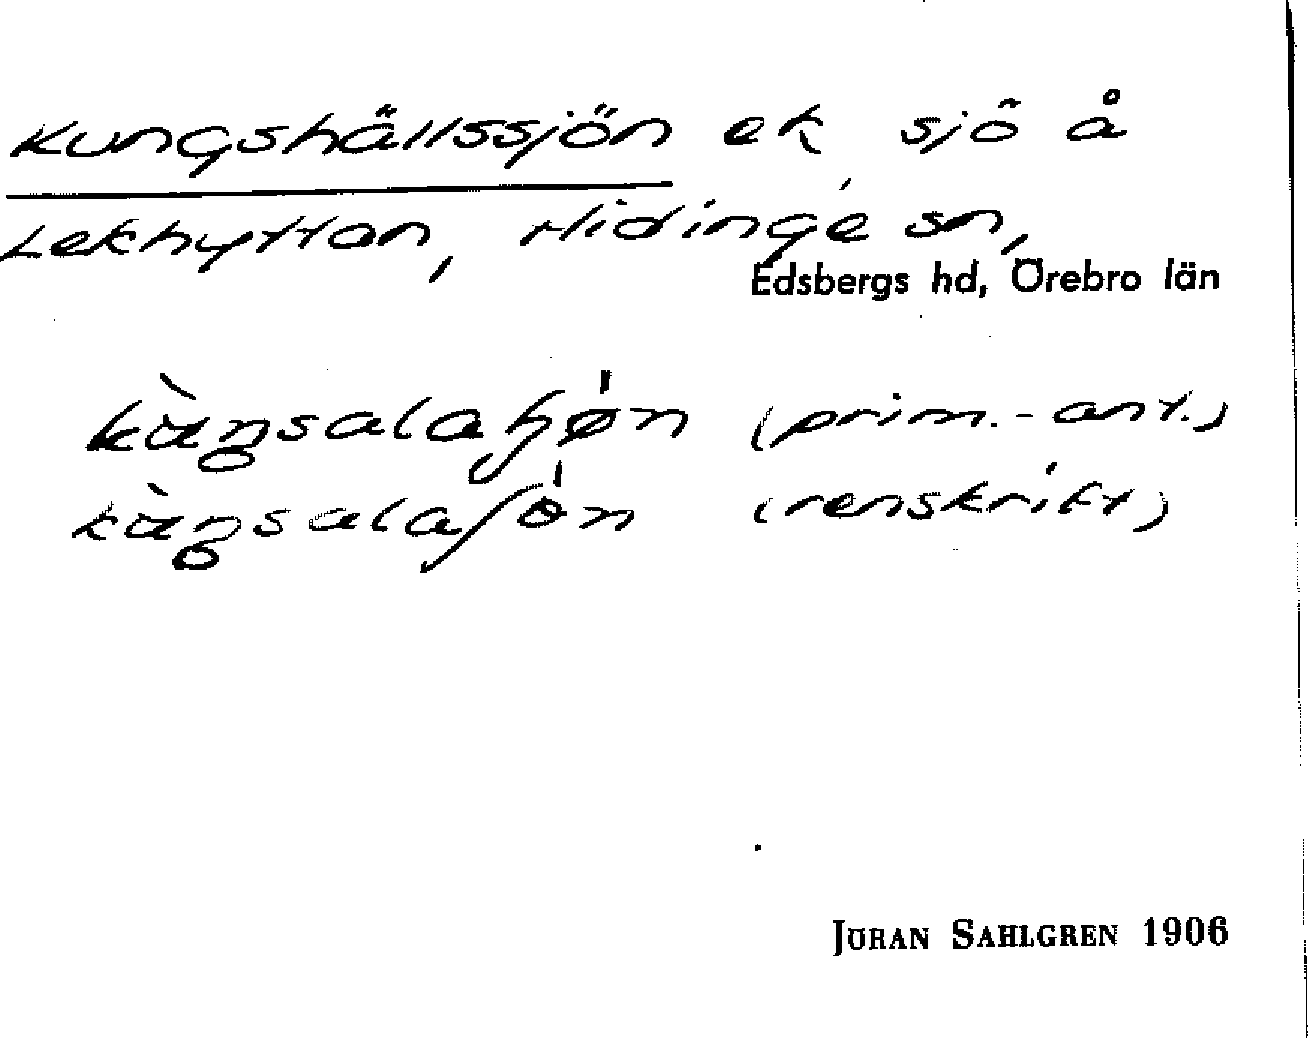 Kungshällssjön ek sjö å
Lekhyttan, Hidinge sn,
Edsbergs hd, Örebro län
(prim.-ant.)
(renskrift)
JÖRAN SAHLGREN 1906